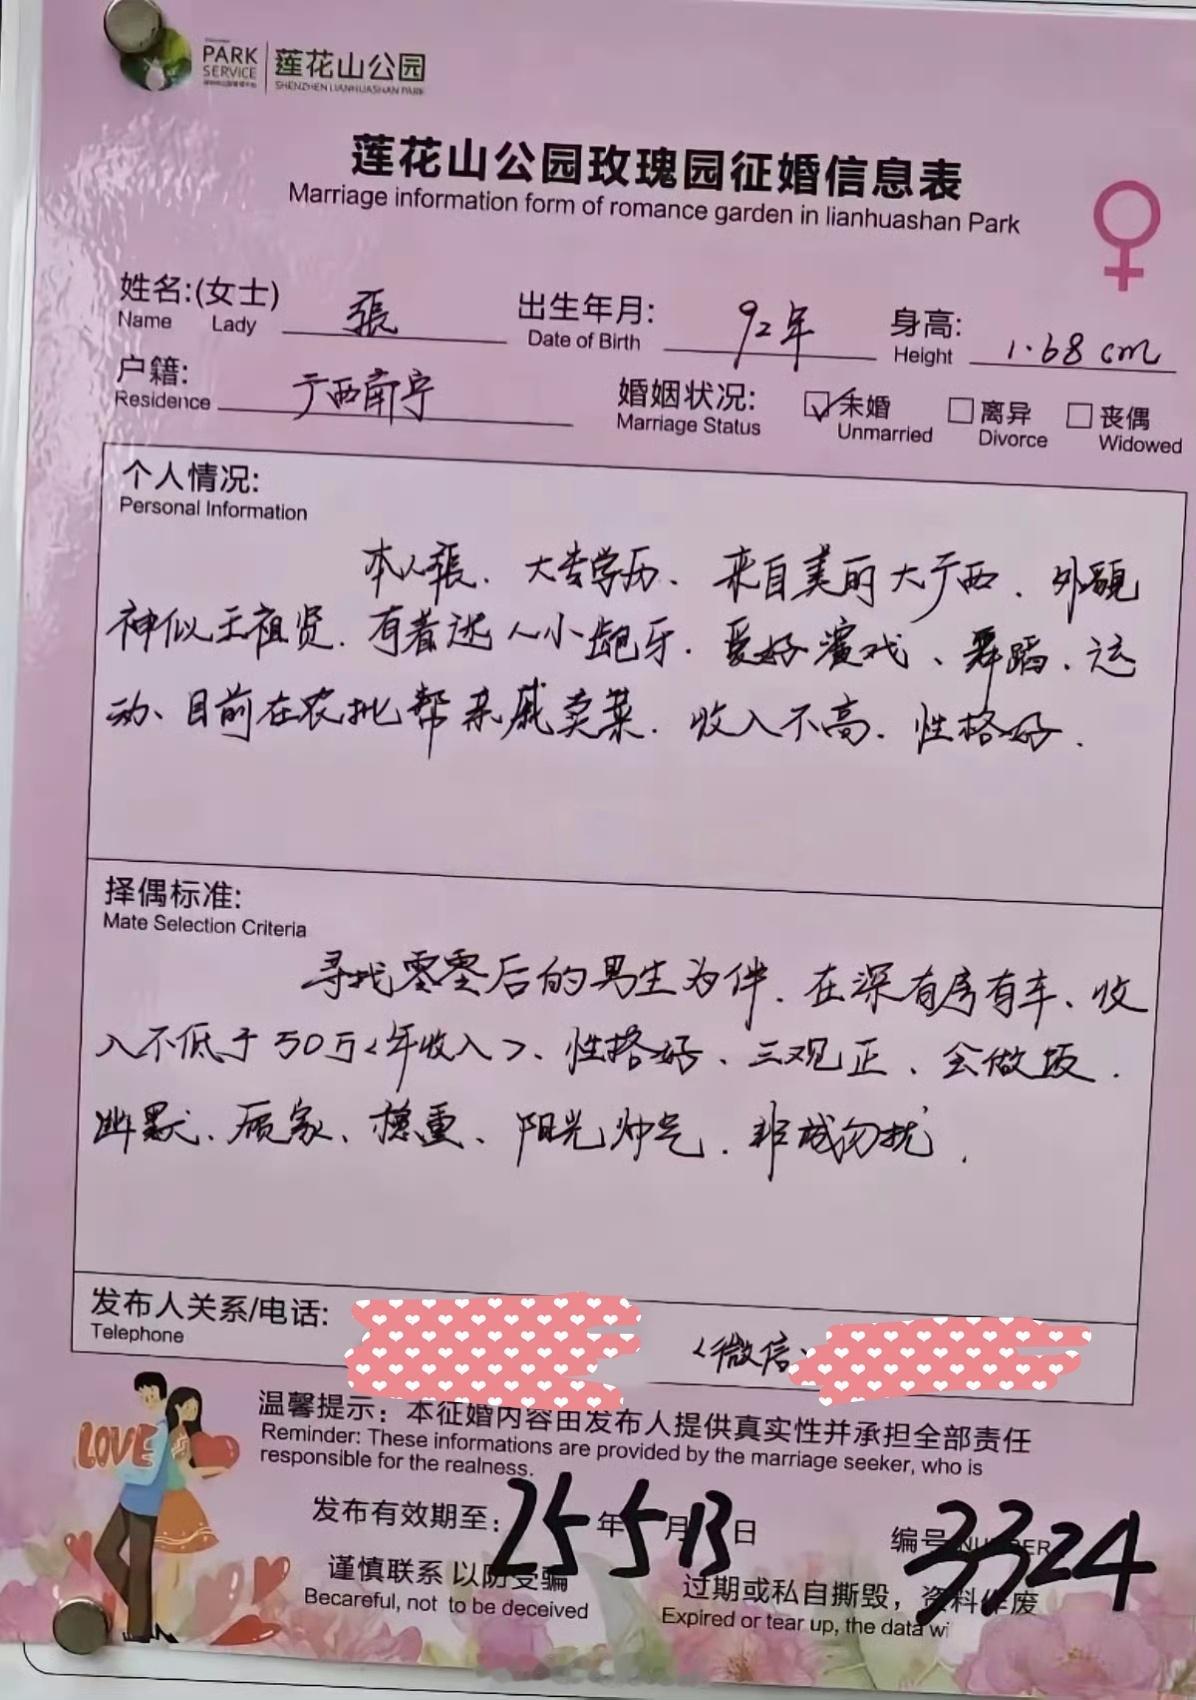 PARK SERVICE
莲花山公园
SHENZHEN LIANHUASHAN PARK
莲花山公园玫瑰园征婚信息表
Marriage information form of romance garden in lianhuashan Park
姓名:(女士) 張 出生年月: 92年 身高: 1.68cm
Name Lady Date of Birth Height
户籍: 广西南宁 婚姻状况: 未婚 离异 丧偶
Residence Marriage Status Unmarried Divorce Widowed
个人情况:
Personal Information
本人張、大专学历、来自美丽大广西、外貌
神似王祖贤、有着迷人小龅牙、爱好演戏、舞蹈、运
动、目前在农批帮亲戚卖菜、收入不高、性格好.
择偶标准:
Mate Selection Criteria
寻找零零后的男生为伴、在深有房有车、收
入不低于50万<年收入>、性格好、三观正、会做饭、
幽默、顾家、稳重、阳光帅气、非诚勿扰.
发布人关系/电话: <微信:
Telephone
LOVE
温馨提示：本征婚内容由发布人提供真实性并承担全部责任
Reminder: These informations are provided by the marriage seeker, who is
responsible for the realness.
发布有效期至: 25年5月13日 编号 3324
谨慎联系 以防受骗 过期或私自撕毁，资料作废
Becareful, not to be deceived Expired or tear up, the data wi